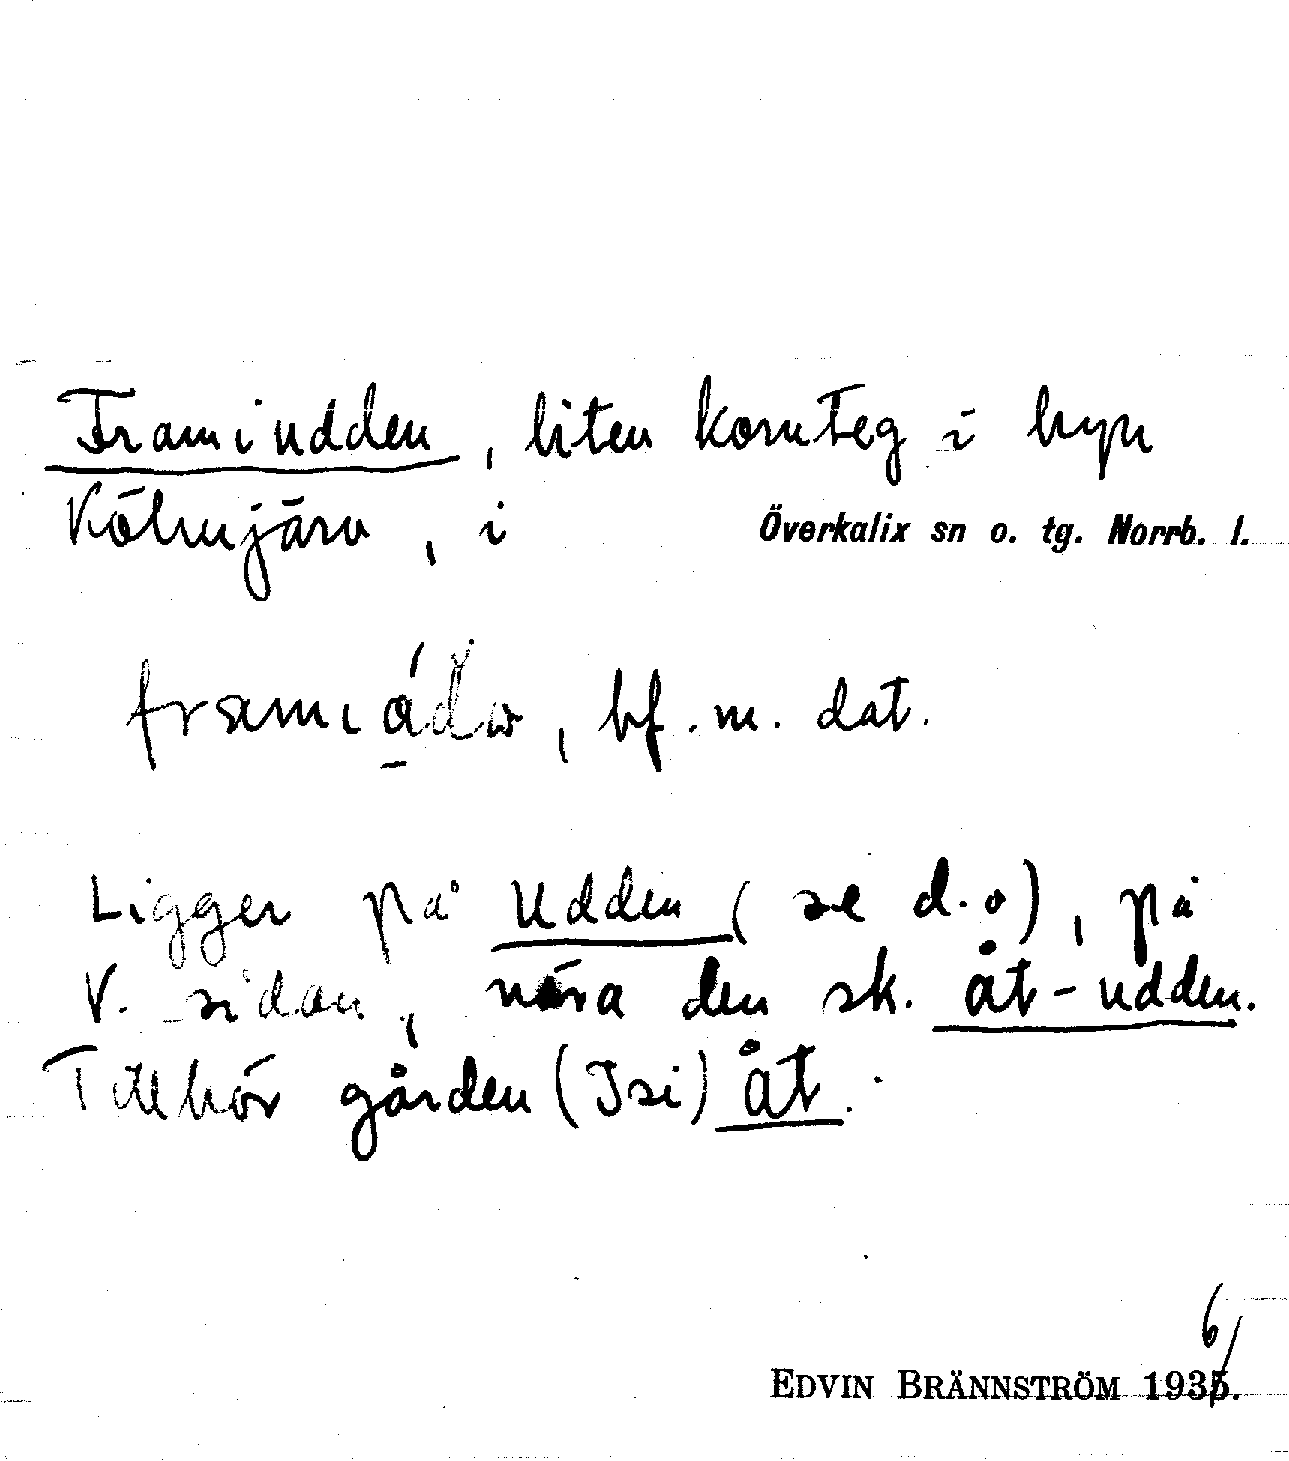 Framiudden, liten kornteg i byn
Kölmjärv, i Överkalix sn o. tg. Norrb. l.
, bf. m. dat.
Ligger på Udden (se d.o), på
V. sidan, nära den sk. åt-udden.
Tillhör gården (Isi) åt.
6
EDVIN BRÄNNSTRÖM 1935.